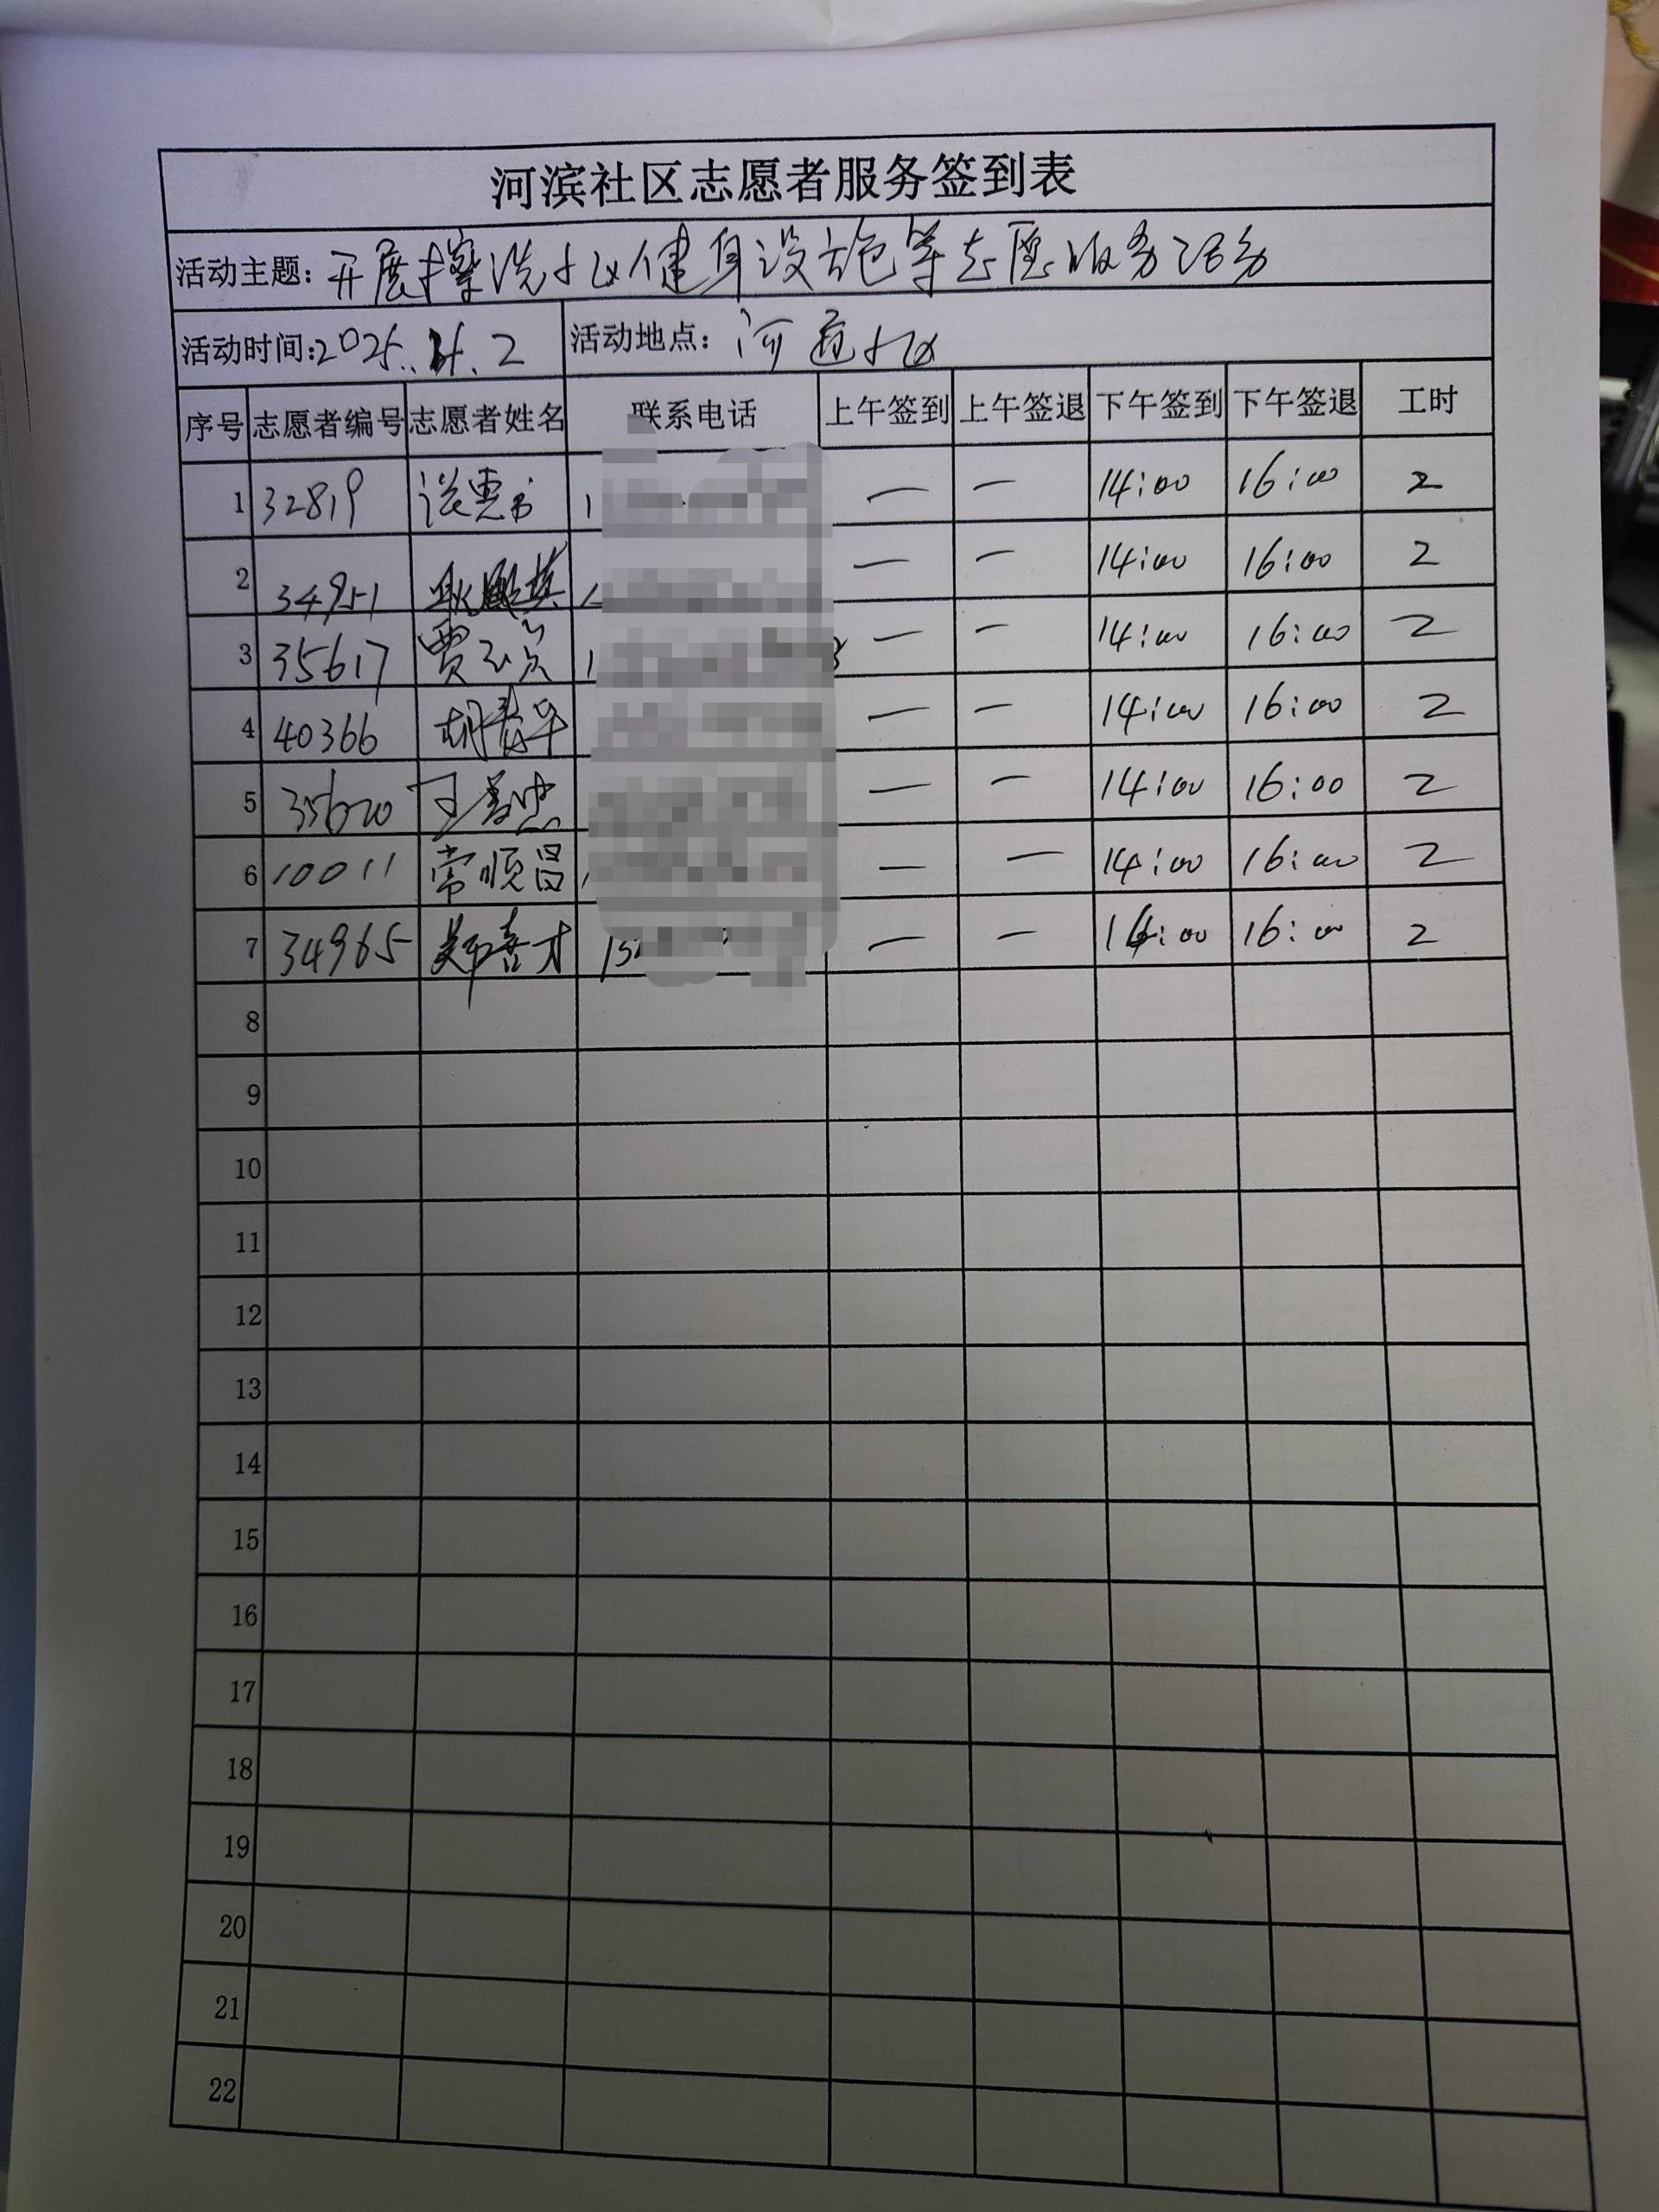 河滨社区志愿者服务签到表
活动主题：开展擦洗小区健身设施等志愿服务活动
活动时间：2025. 4. 2 活动地点：河 小区
序号 志愿者编号 志愿者姓名 联系电话 上午签到 上午签退 下午签到 下午签退 工时
1 32819 1 — — 14:00 16:00 2
2 34951 耿 英 1 — — 14:00 16:00 2
3 35617 贾 1 — — 14:00 16:00 2
4 40366 胡 华 — — 14:00 16:00 2
5 35620 王 忠 — — 14:00 16:00 2
6 10011 常顺昌 — — 14:00 16:00 2
7 34965 郑喜才 15 — — 14:00 16:00 2
8
9
10
11
12
13
14
15
16
17
18
19
20
21
22